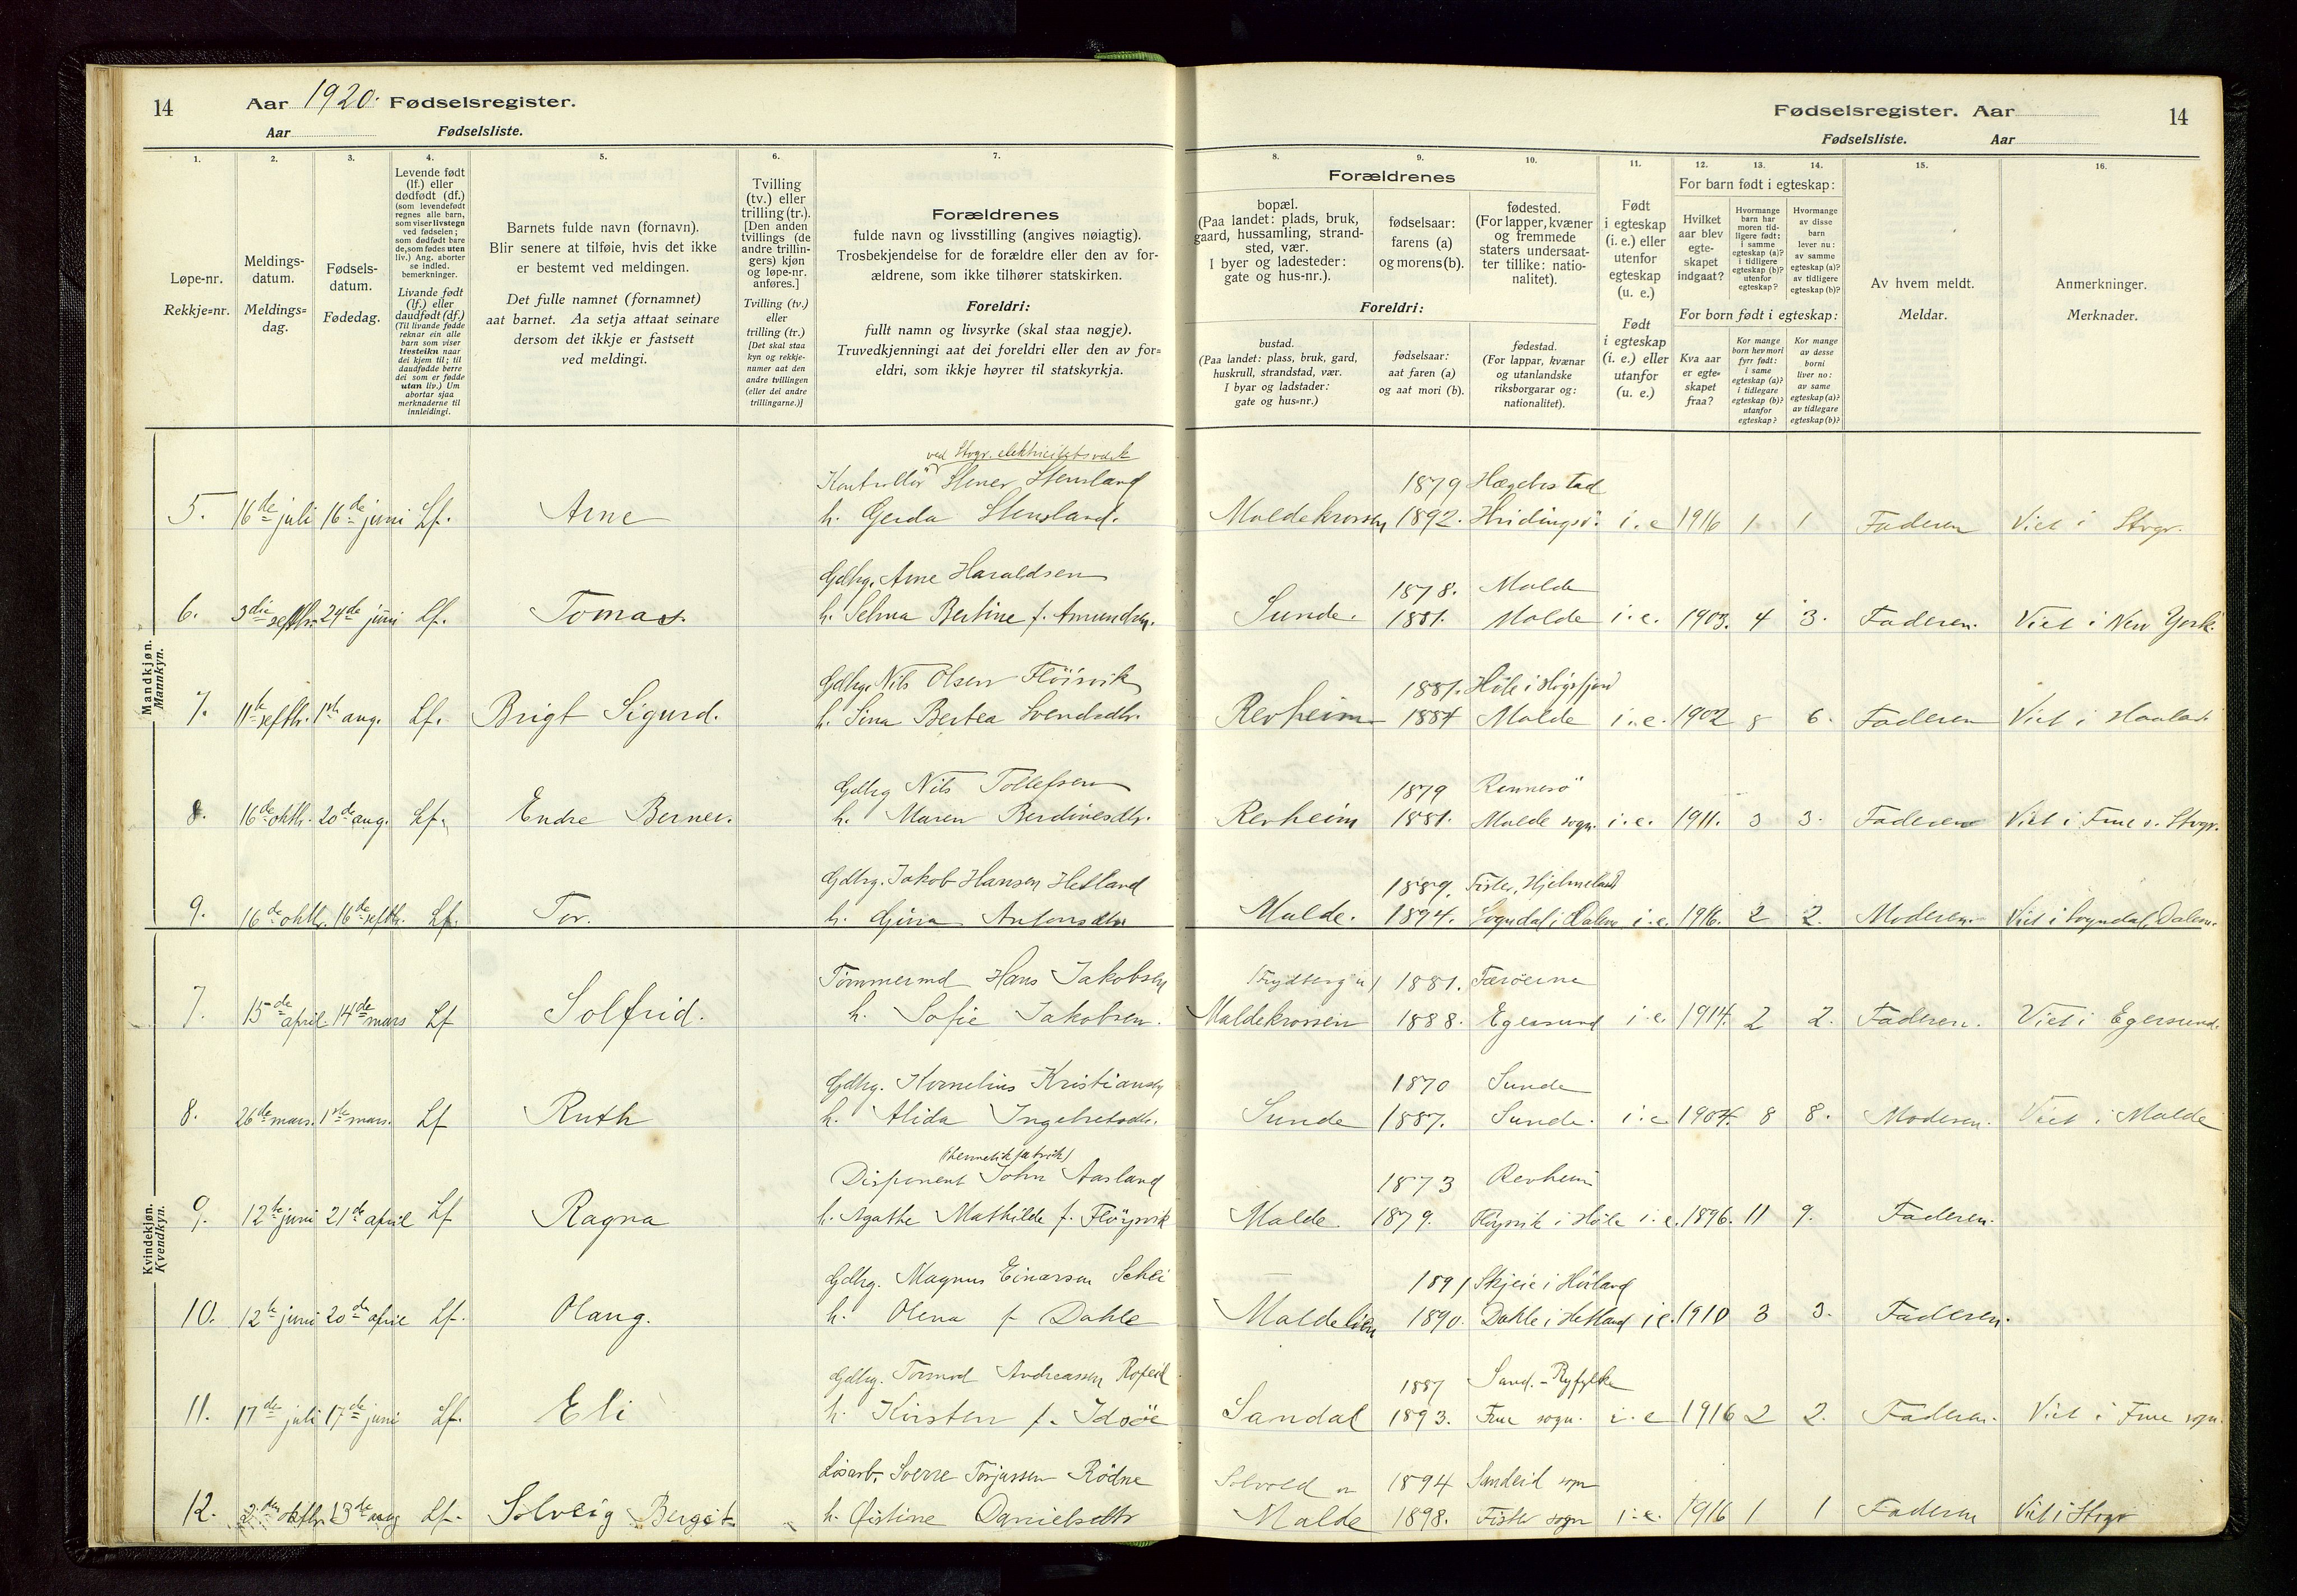 14 Aar 1920. Fødselsregister.
Aar Fødselsliste.
Fødselsregister. Aar 14
Fødselsliste. Aar
1. 2. 3. 4. 5. 6. 7. 8. 9. 10. 11. 12. 13. 14. 15. 16.
Løpe-nr.
Rekkje=nr.
Meldings-
datum.
Meldings=
dag.
Fødsels-
datum.
Fødedag.
Levende født
(lf.) eller
dødfødt (df.)
(som levendefødt
regnes alle barn,
som viser livstegn
ved fødselen;
som dødfødt bare
de, som fødes uten
liv.) Ang. aborter
se indled.
bemerkninger.
Livande født
(lf.) eller
daudfødt (df.)
(Til livande fødde
reknar ein alle
barn som viser
livsteikn naar
dei kjem til; til
daudfødde berre
dei som er fødde
utan liv.) Um
abortar sjaa
merknaderne til
innleidingi.
Barnets fulde navn (fornavn).
Blir senere at tilføie, hvis det ikke
er bestemt ved meldingen.
Det fulle namnet (fornamnet)
aat barnet. Aa setja attaat seinare
dersom det ikkje er fastsett
ved meldingi.
Tvilling
(tv.) eller
trilling (tr.).
[Den anden
tvillings (de
andre trillin-
gers) kjøn
og løpe-nr.
anføres.]
Tvilling (tv.)
eller
trilling (tr.)
[Det skal staa
kyn og rekkje-
numer aat den
andre tvillingen
(eller dei andre
trillingarne.)]
Forældrenes
fulde navn og livsstilling (angives nøiagtig).
Trosbekjendelse for de forældre eller den av for-
ældrene, som ikke tilhører statskirken.
Foreldri:
fullt namn og livsyrke (skal staa nøgje).
Truvedkjenningi aat dei foreldri eller den av for=
eldri, som ikkje høyrer til statskyrkja.
Forældrenes
bopæl.
(Paa landet: plads, bruk,
gaard, hussamling, strand-
sted, vær.
I byer og ladesteder:
gate og hus-nr.).
fødselsaar:
farens (a)
og morens (b).
fødested.
(For lapper, kvæner
og fremmede
staters undersaat-
ter tillike: natio-
nalitet).
Foreldri:
bustad.
(Paa landet: plass, bruk, gard,
huskrull, strandstad, vær.
I byar og ladstader:
gate og hus=nr.)
fødselsaar:
aat faren (a)
og aat mori (b).
fødestad.
(For lappar, kvænar
og utanlandske
riksborgarar og:
nationalitet).
Født
i egteskap
(i. e.) eller
utenfor
egteskap
(u. e.)
Født
i egteskap
(i. e.) eller
utanfor
(u. e.)
For barn født i egteskap:
Hvilket
aar blev
egte-
skapet
indgaat?
Hvormange
barn har
moren tid-
ligere født:
i samme
egteskap (a)?
i tidligere
egteskap (b)?
utenfor
egteskap?
Hvormange
av disse
barn
lever nu:
av samme
egteskap (a)?
av tidligere
egteskap (b)?
For born født i egteskap:
Kva aar
er egte-
skapet
fraa?
Kor mange
born hev mori
fyrr født:
i same
egteskap (a)?
i tidlegare
egteskap (b)?
utanfor
egteskap?
Kor mange
av desse
borni
liver no:
av same
egteskap (a)?
av tidlegare
egteskap (b)?
Av hvem meldt.
Meldar.
Anmerkninger.
Merknader.
Mandkjøn.
Mannkyn.
ved Stvgr. elektricitetsverk
Kontrollör Stener Stensland 1879 Hægebostad
5. 16de juli 16de juni Lf. Arne h. Gerda Stensland. Maldekrossen 1892. Hvidingsö. i.e 1916 1 1 Faderen Viet i Stvgr.
Gdbrg. Arne Haraldsen 1878. Malde
6. 3die septbr. 24de juni Lf. Tomas. h. Selma Bertine f. Amundsen. Sunde. 1881. Malde i.e. 1903. 4 3. Faderen. Viet i New York.
Gdbrg. Nils Olsen Flöisvik 1881. Höle i Högsfjord
7. 11te septbr. 1ste aug. Lf. Brigt Sigurd. h. Sina Bertea Svendsdtr. Revheim 1884 Malde i.e. 1902 8 6. Faderen Viet i Haaland
Gdbrg Nils Tollefsen 1879 Rennesö
8. 16de oktbr. 20de aug. Lf. Endre Berner. h. Maren Berdinesdtr. Revheim 1881. Malde sogn. i.e. 1911. 3 3. Faderen Viet i Frue s. Stvgr.
Gdbrg. Jakob Hansen Hetland 1889. Fister, Hjelmeland
9. 16de oktbr. 16de septbr. Lf. Tor. h. Gina Antonsdtr Malde. 1894. Sogndal i Dalene i.e. 1916. 2 2. Moderen. Viet i Sogndal, Dalen.
Kvindekjøn.
Kvendkyn.
Tömmermd Hans Jakobsen (Frydberg n) 1881. Færöerne
7. 15de april 14de mars Lf Solfrid. h. Sofie Jakobsen. Maldekrossen 1888. Egersund i.e. 1914. 2 2. Faderen. Viet i Egersund.
Gdbrg. Kornelius Kristiansen 1870 Sunde
8. 26de mars. 1ste mars. Lf Ruth h. Alida Ingebretsdtr. Sunde 1887. Sunde. i.e 1904. 8 8. Moderen. Viet i Malde
(hermetikfabrik)
Disponent John Aasland 1873 Revheim
9. 12te juni 21de april Lf Ragna h. Agathe Mathilde f. Flöysvik Malde. 1879. Flöysvik i Höle i.e. 1896. 11 9. Faderen.
Gdbrg. Magnus Einarsen Schei 1891 Skjeie i Höiland
10. 12te juni 20de april Lf. Olaug. h. Olena f. Dahle Maldelien 1890. Dahle i Hetland i e. 1910 3 3. Faderen.
Gdbrg. Tormod Andreassen Ropeid 1887 Sand.-Ryfylke
11. 17de juli 17de juni Lf. Eli h. Kirsten f. Idsöe Sandal 1893. Frue sogn. i.e 1916 2 2. Faderen. Viet i Frue sogn.
Lösarb. Sverre Torjussen Rödne Solvold n 1894 Sandeid sogn
12. 2den oktbr. 13de aug Lf. Solveig Bergit h. Øistine Danielsdtr Malde 1898. Fister sogn i.e. 1916 1 1 Faderen Viet i Stvgr